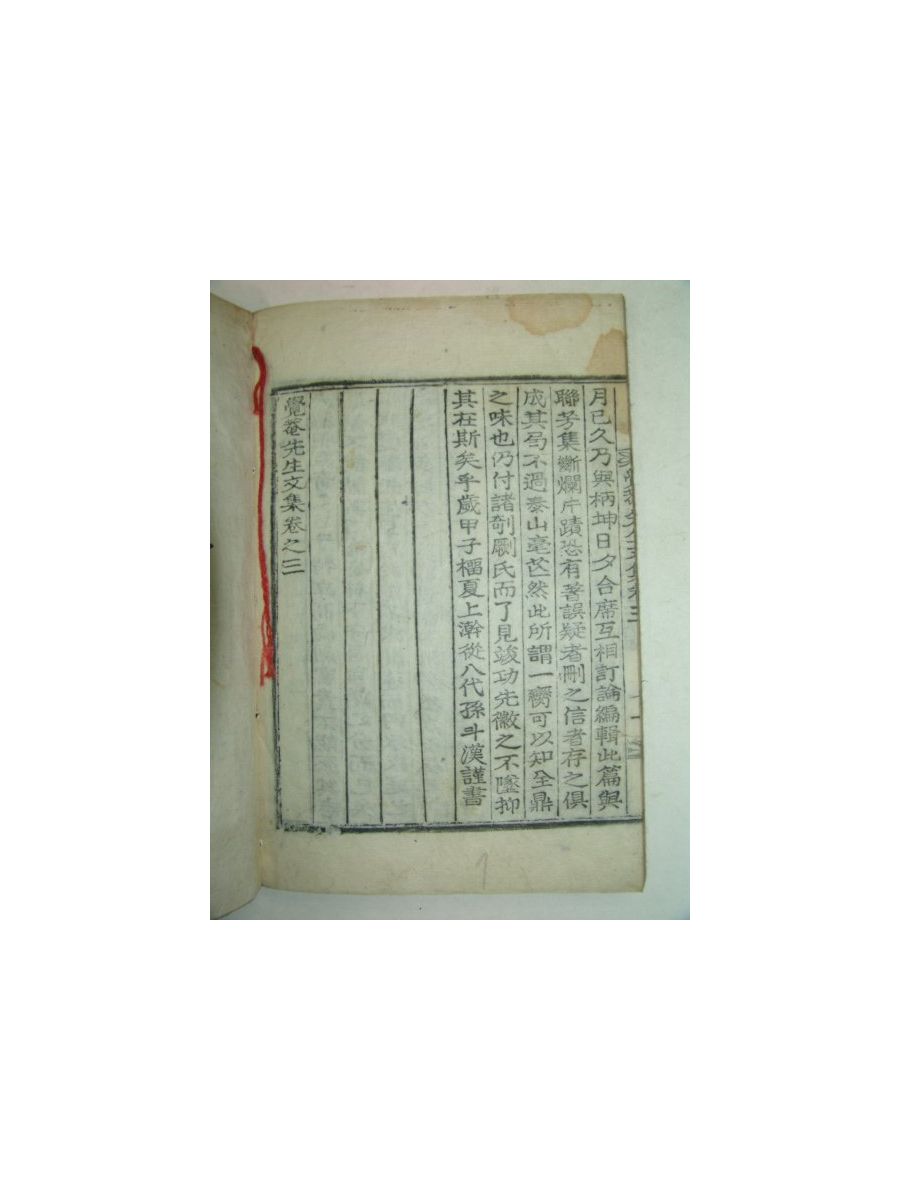 月已久乃與柄坤日夕合席互相訂論編輯此篇與
聯芳集斷爛片蹟恐有著誤疑者刪之信者存之俱
成其局不過泰山毫芒然此所謂一臠可以知全鼎
之味也仍付諸剞劂氏而了見竣功先徽之不墜抑
其在斯矣乎歲甲子榴夏上澣從八代孫斗漢謹書
覺菴先生文集卷之三